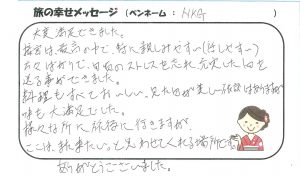 旅の幸せメッセージ（ペンネーム： HKG ）
大変満足できました。
接客は最高の中で、特に親しみやすい（話しやすい）
方々ばかりで、日頃のストレスを忘れ充実した日を
送る事ができました。
料理もすべておいしい。見た目が美しい
味も大満足でした。
様々な所に旅行に行きますが、
ここは、又来たい。と思わせてくれる場所です。
ありがとうございました。